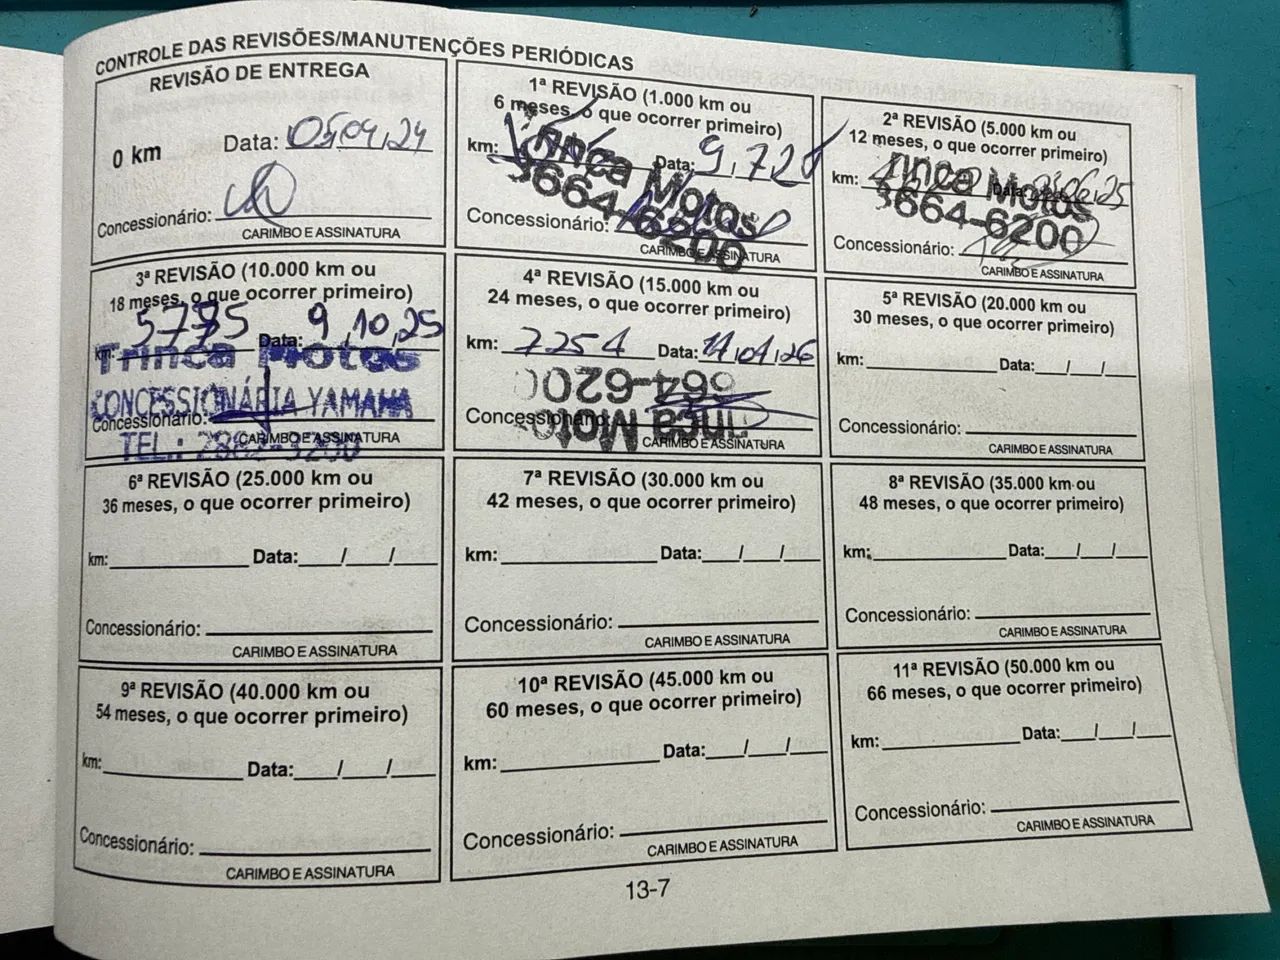 CONTROLE DAS REVISÕES/MANUTENÇÕES PERIÓDICAS
REVISÃO DE ENTREGA
0 km Data: 05,04,24
Concessionário:
CARIMBO E ASSINATURA
1ª REVISÃO (1.000 km ou
6 meses, o que ocorrer primeiro)
km: Data: 9,7,2
Trinca Motos
3664-6200
Concessionário:
CARIMBO E ASSINATURA
2ª REVISÃO (5.000 km ou
12 meses, o que ocorrer primeiro)
km: Data: 06,25
rinca Motos
3664-6200
Concessionário:
CARIMBO E ASSINATURA
3ª REVISÃO (10.000 km ou
18 meses, o que ocorrer primeiro)
km: 5775 Data: 9,10,25
Trinca Motos
CONCESSIONÁRIA YAMAHA
Concessionário:
TEL.: 2882-3200
CARIMBO E ASSINATURA
4ª REVISÃO (15.000 km ou
24 meses, o que ocorrer primeiro)
km: 7254 Data: 14,01,26
664-620
Concessionário:
inca Moto
CARIMBO E ASSINATURA
5ª REVISÃO (20.000 km ou
30 meses, o que ocorrer primeiro)
km: Data: / /
Concessionário:
CARIMBO E ASSINATURA
6ª REVISÃO (25.000 km ou
36 meses, o que ocorrer primeiro)
km: Data: / /
Concessionário:
CARIMBO E ASSINATURA
7ª REVISÃO (30.000 km ou
42 meses, o que ocorrer primeiro)
km: Data: / /
Concessionário:
CARIMBO E ASSINATURA
8ª REVISÃO (35.000 km ou
48 meses, o que ocorrer primeiro)
km: Data: / /
Concessionário:
CARIMBO E ASSINATURA
9ª REVISÃO (40.000 km ou
54 meses, o que ocorrer primeiro)
km: Data: / /
Concessionário:
CARIMBO E ASSINATURA
10ª REVISÃO (45.000 km ou
60 meses, o que ocorrer primeiro)
km: Data: / /
Concessionário:
CARIMBO E ASSINATURA
11ª REVISÃO (50.000 km ou
66 meses, o que ocorrer primeiro)
km: Data: / /
Concessionário:
CARIMBO E ASSINATURA
13-7